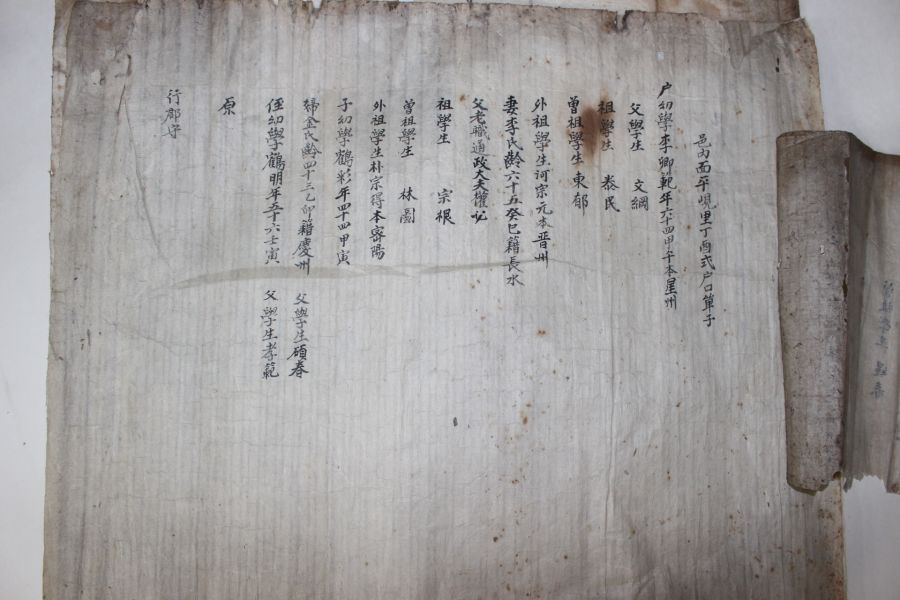 邑內面平峴里丁酉式戶口單子
户幼學李卿範年六十四甲午本星州
父學生 文綱
祖學生 泰民
曾祖學生 東郁
外祖學生河宗元本晋州
妻李氏齡六十五癸巳籍長水
父老職通政大夫權
祖學生 宗根
曾祖學生 林園
外祖學生朴宗得本密陽
子幼學鶴彩年四十四甲寅
婦金氏齡四十三乙卯籍慶州 父學生碩春
侄幼學鶴明年五十六壬寅 父學生孝範
原
行郡守